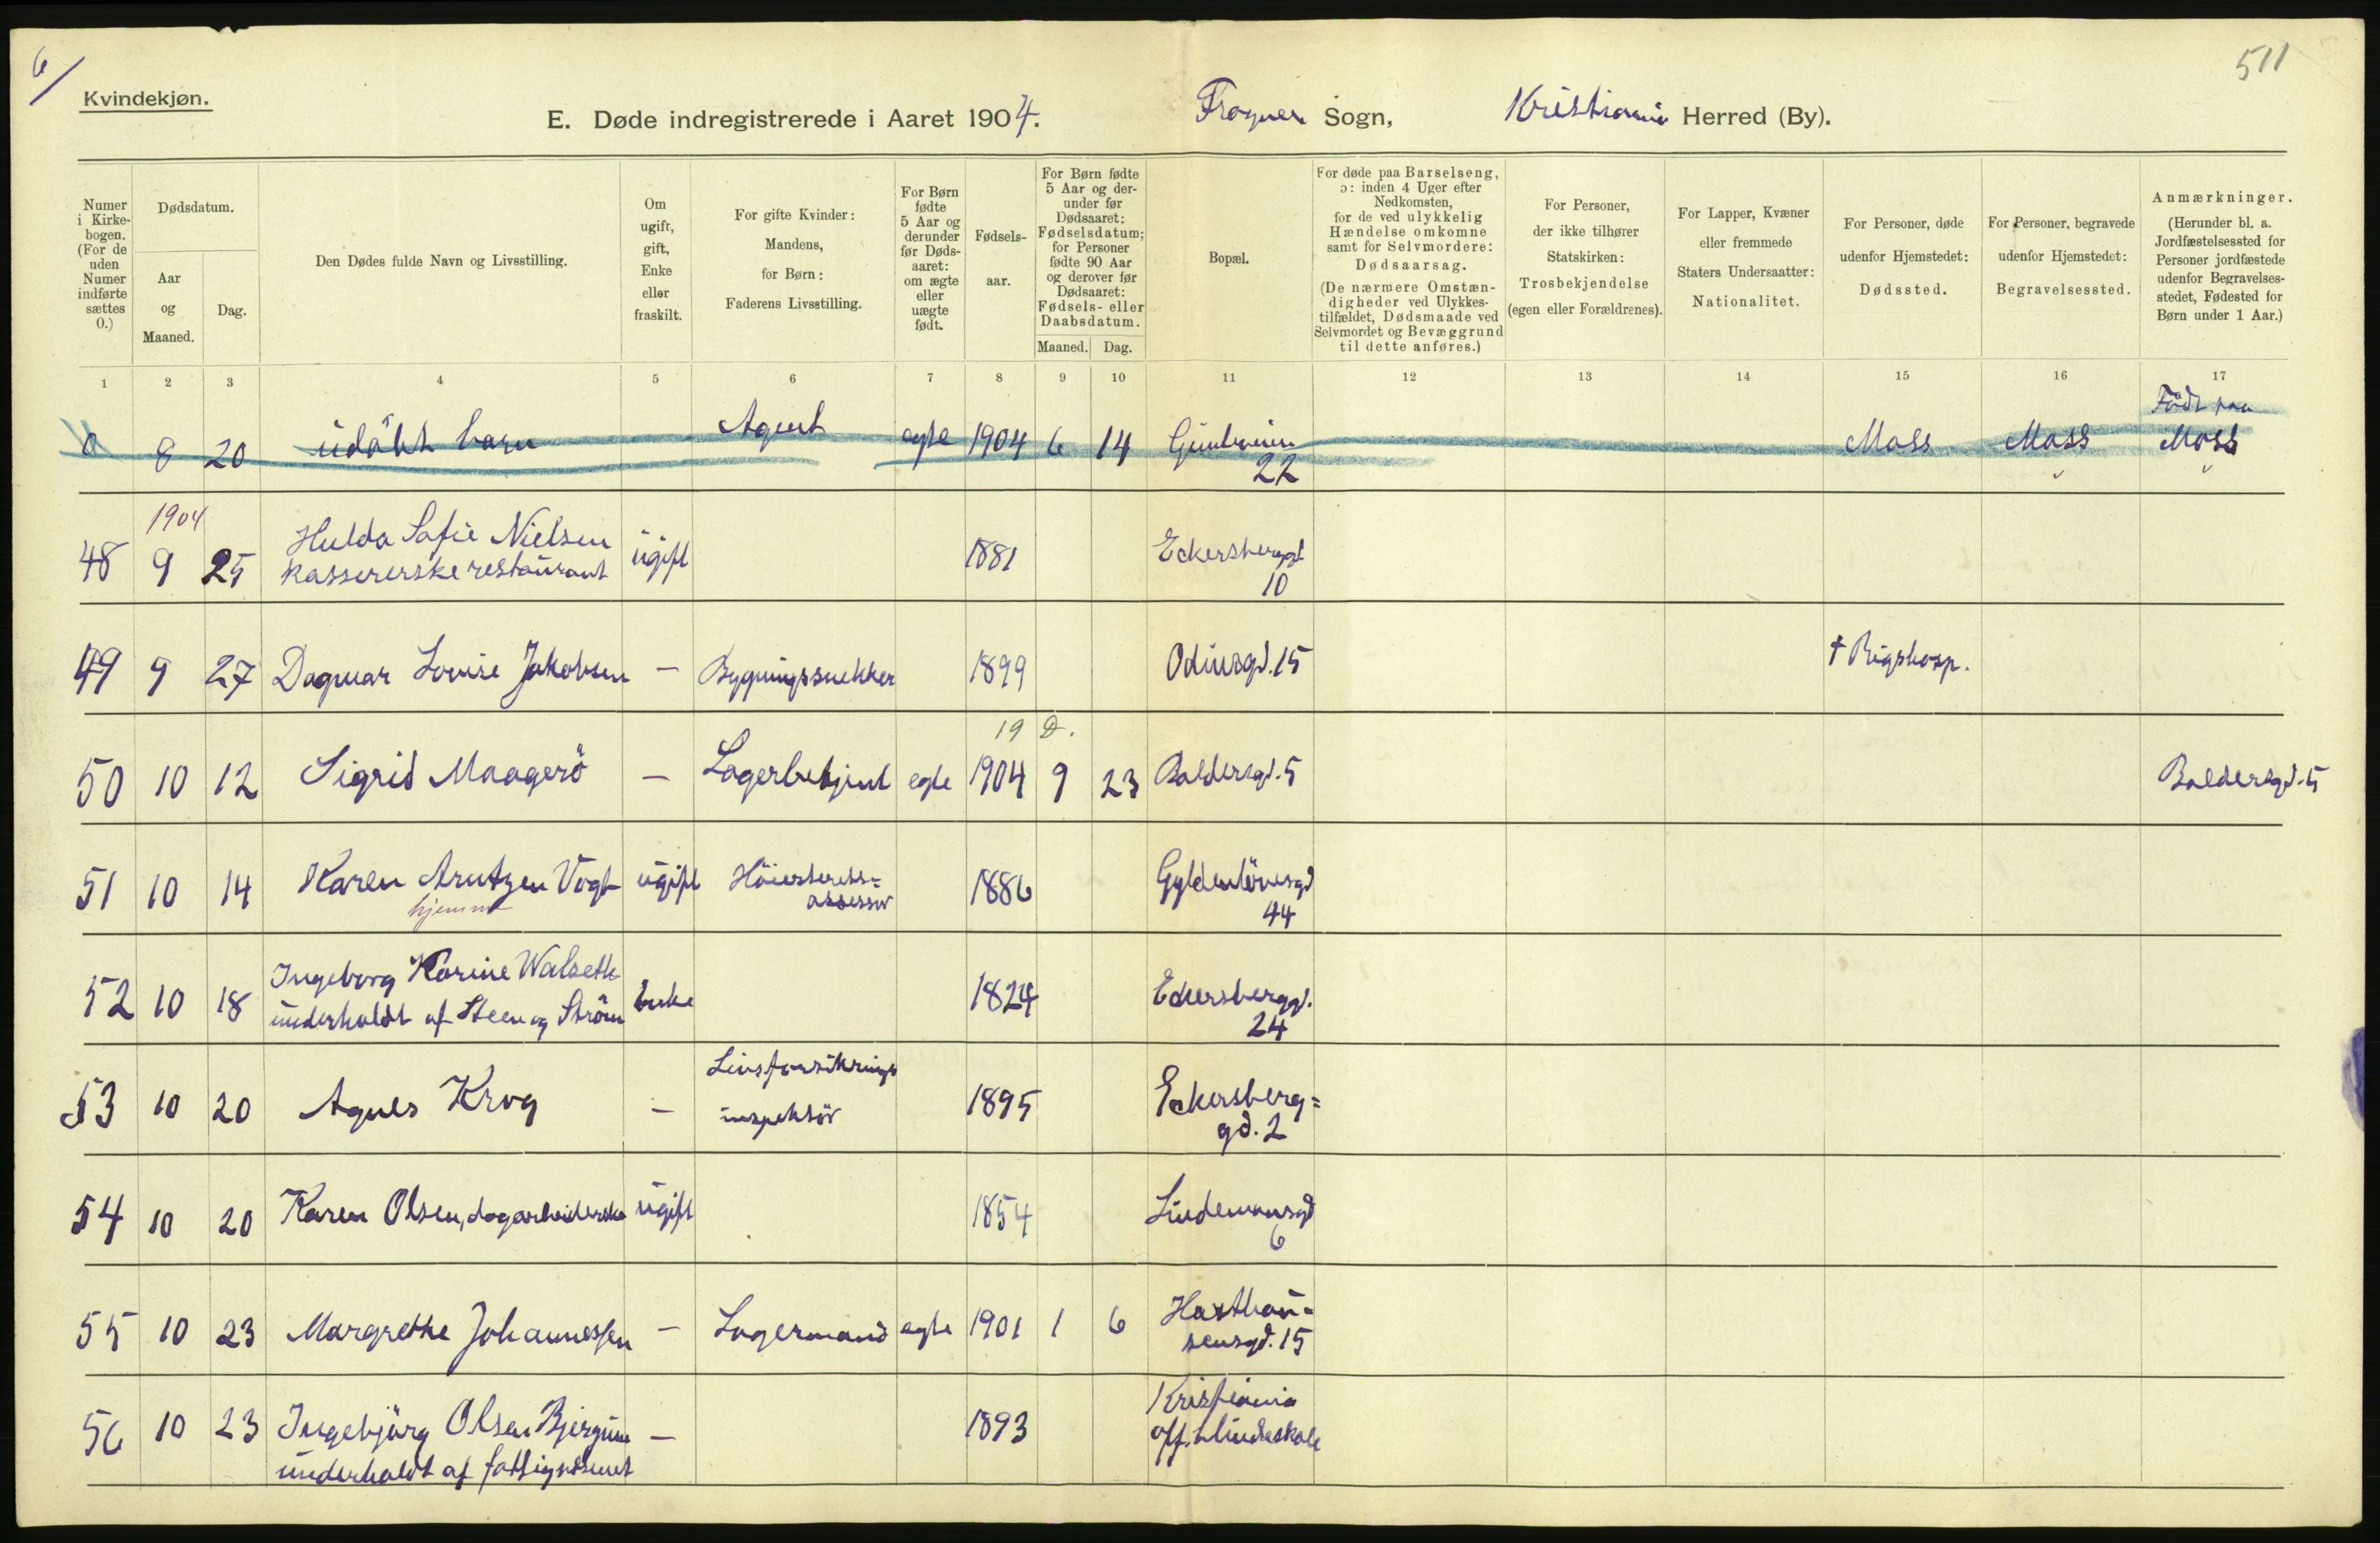 6/
511
Kvindekjøn.
E. Døde indregistrerede i Aaret 1904. Frogner Sogn, Kristiania Herred (By).
Numer i Kirkebogen. (For de uden Numer indførte sættes 0.)
Dødsdatum.
Aar og Maaned.
Dag.
Den Dødes fulde Navn og Livsstilling.
Om ugift, gift, Enke eller fraskilt.
For gifte Kvinder: Mandens, for Børn: Faderens Livsstilling.
For Børn fødte 5 Aar og derunder før Dødsaaret: om ægte eller uægte født.
Fødselsaar.
For Børn fødte 5 Aar og derunder før Dødsaaret: Fødselsdatum; for Personer fødte 90 Aar og derover før Dødsaaret: Fødsels- eller Daabsdatum.
Maaned. Dag.
Bopæl.
For døde paa Barselseng, ɔ: inden 4 Uger efter Nedkomsten, for de ved ulykkelig Hændelse omkomne samt for Selvmordere: Dødsaarsag. (De nærmere Omstændigheder ved Ulykkestilfældet, Dødsmaade ved Selvmordet og Bevæggrund til dette anføres.)
For Personer, der ikke tilhører Statskirken: Trosbekjendelse (egen eller Forældrenes).
For Lapper, Kvæner eller fremmede Staters Undersaatter: Nationalitet.
For Personer, døde udenfor Hjemstedet: Dødssted.
For Personer, begravede udenfor Hjemstedet: Begravelsessted.
Anmærkninger. (Herunder bl. a. Jordfæstelsessted for Personer jordfæstede udenfor Begravelsesstedet, Fødested for Børn under 1 Aar.)
1 2 3 4 5 6 7 8 9 10 11 12 13 14 15 16 17
0 8 20 udöbt barn Agent egte 1904 6 14 22 Moss Moss Født paa Moss
1904
48 9 25 Hulda Sofie Nielsen ugift 1881 Eckersbergsgt
kassererske restaurant 10
49 9 27 Dagmar Lovise Jakobsen — Bygningssnekker 1899 Odinsgd. 15 † Rigshosp.
19 D.
50 10 12 Sigrid Maagerö — Lagerbetjent egte 1904 9 23 Baldersgd. 5 Baldersgd. 5
51 10 14 Karen Arntzen Vogt ugift Höiesterets= assessor 1886 Gyldenlövesgd 44
hjemme
52 10 18 Ingeborg Karine Walseth enke 1824 Eckersberggd. 24
underholdt af Steen og Ström
53 10 20 Agnes Krog — Livsforsikrings inspektör 1895 Eckersberg= gd. 2
54 10 20 Karen Olsen, dagarbeiderske ugift 1854 Lindemansgd 6
55 10 23 Margrethe Johannessen — Lagermand egte 1901 1 6 Haxthau= sensgd. 15
56 10 23 Ingebjörg Olsen — 1893 Kristiania off. blindeskole
underholdt af